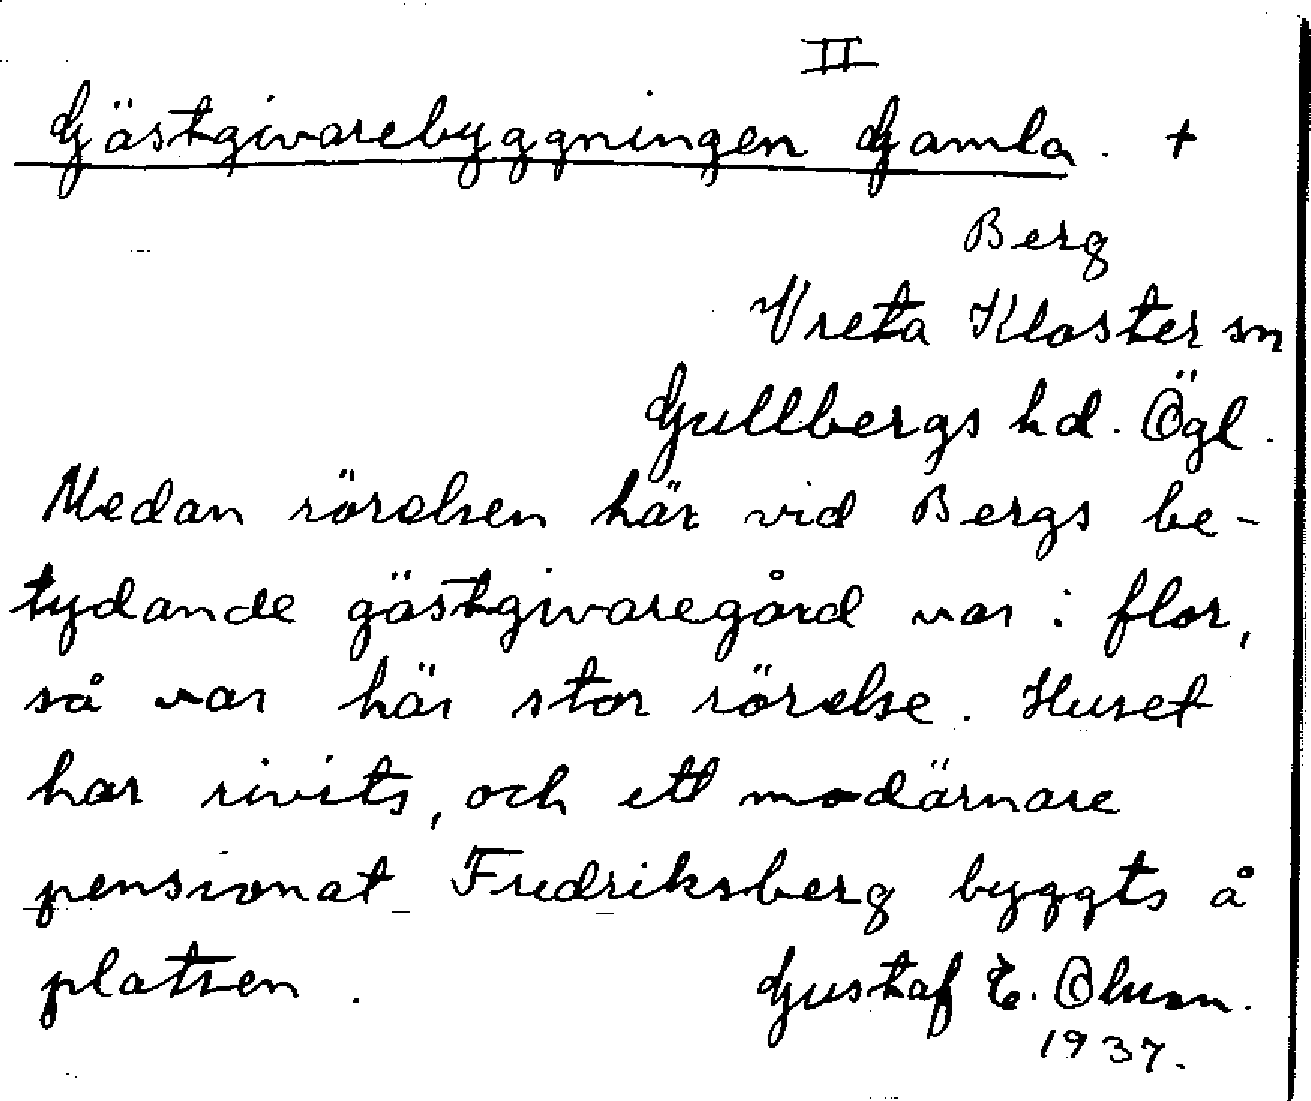 II
Gästgivarebyggningen Gamla. +
Berg
Vreta Kloster sn
Gullbergs hd. Ögl.
Medan rörelsen här vid Bergs be-
tydande gästgivaregård var i flor,
så var här stor rörelse. Huset
har rivits, och ett modärnare
pensionat Fredriksberg byggts å
platsen.
Gustaf E. Olsson.
1937.